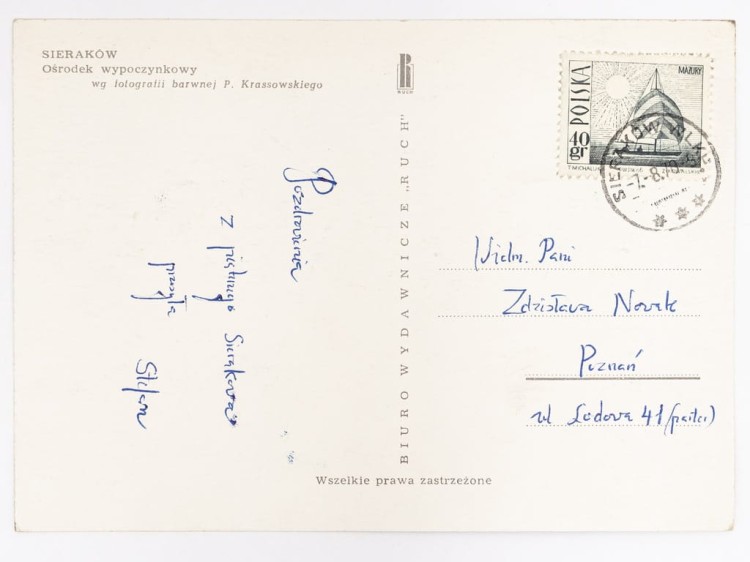 SIERAKÓW
Ośrodek wypoczynkowy
wg fotografii barwnej P. Krassowskiego
RUCH
POLSKA
MAZURY
40 gr
SIERAKÓW WLKP.
-7.-8.70.
BIURO WYDAWNICZE „RUCH"
Pozdrowienia
z pięknego Sierakowa
przesyła
Stefan
Wielm. Pani
Zdzisława Nowak
Poznań
ul Ludowa 41 (parter)
Wszelkie prawa zastrzeżone